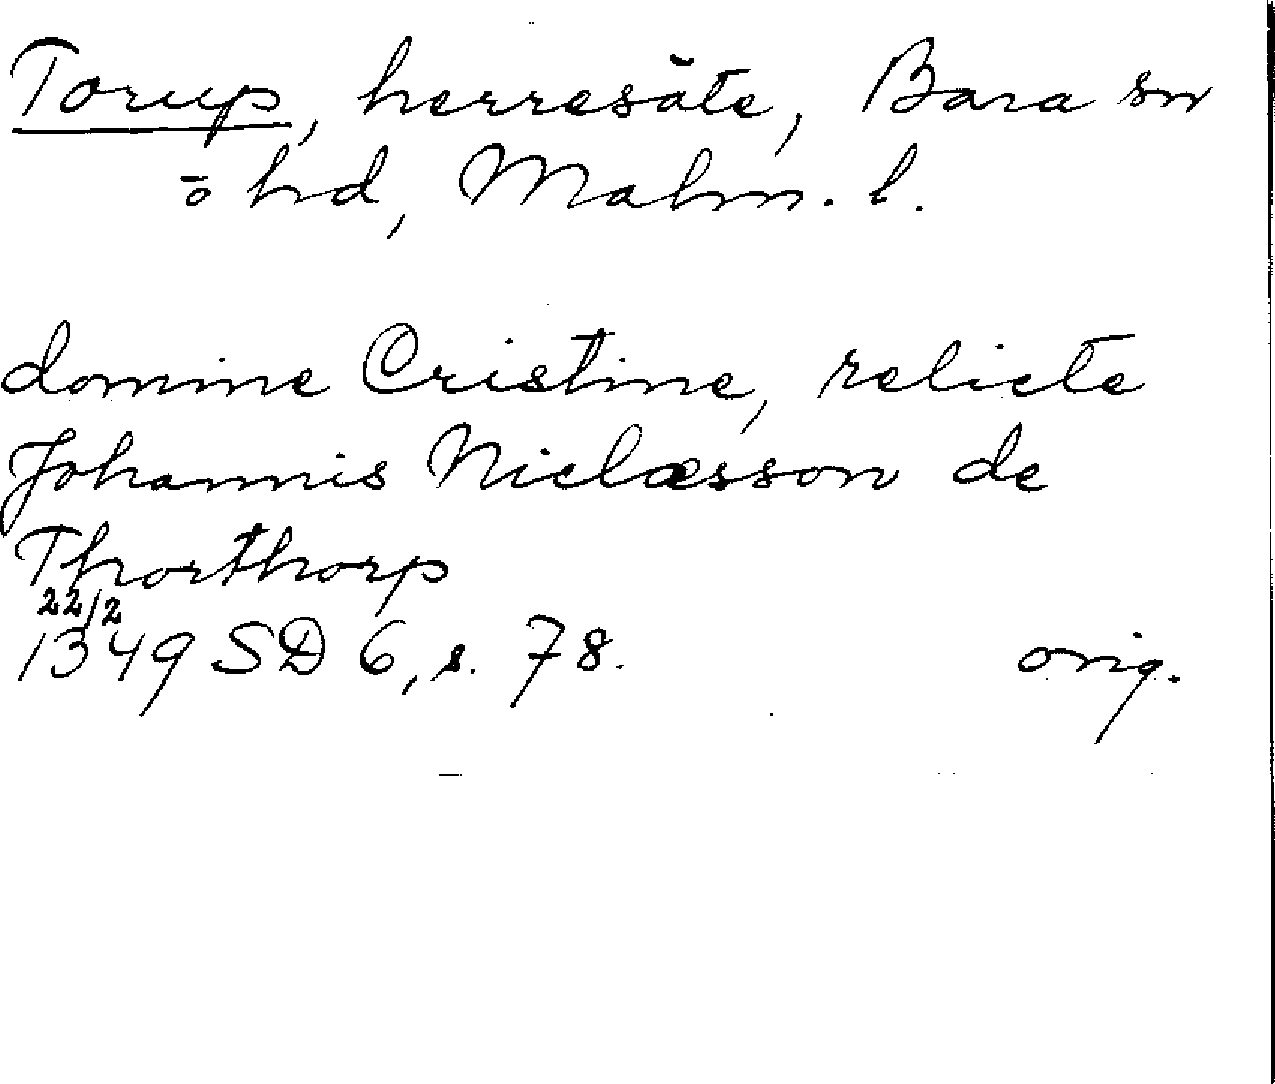 Torup, herresäte, Bara sn
o hd, Malm. l.
domine Cristine, relicte
Johannis Niclæsson de
Thorthorp
22/2
1349 SD 6, s. 78. orig.